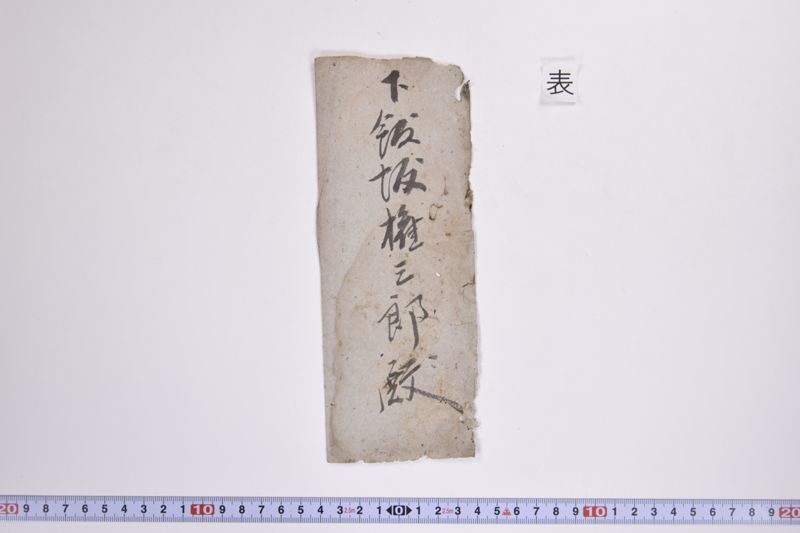 下飯坂権三郎殿
表
20 9 8 7 6 5 4 3 2 1 10 9 8 7 6 5 4 3 2.5m 2 1 0 1 2 2.5m 3 4 5 6 7 8 9 10 1 2 3 4 5 6 7 8 9 20